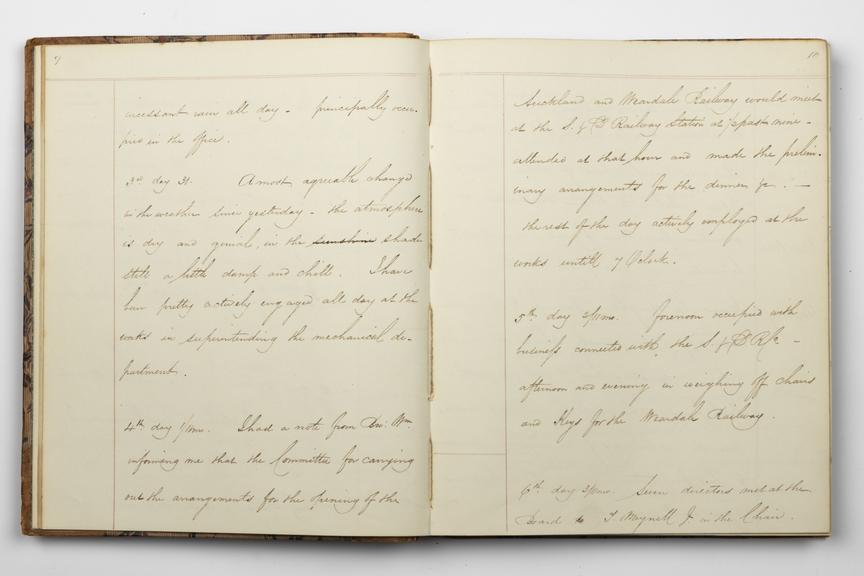 9
incessant rain all day - principally occu-
pied in the office.
3rd day 31. A most agreeable change
in the weather since yesterday - the atmosphere
is dry and genial, in the sunshine shade
still a little damp and chill. I have
been pretty actively engaged all day at the
works in superintending the mechanical de-
partment.
4th day 1/11mo. I had a note from Bro: Wm
informing me that the Committee for carrying
out the arrangements for the opening of the
10
Auckland and Weardale Railway would meet
at the S. & D Railway Station at ½ past nine -
attended at that hour and made the prelim-
inary arrangements for the dinner &c. -
the rest of the day actively employed at the
works untill 7 O'clock.
5th day 2/11mo. forenoon occupied with
business connected with the S. & D R/c -
afternoon and evening in weighing off chairs
and Keys for the Weardale Railway.
6th day 3/11mo. Seven directors met at the
Board T. Meynell Jr in the Chair.